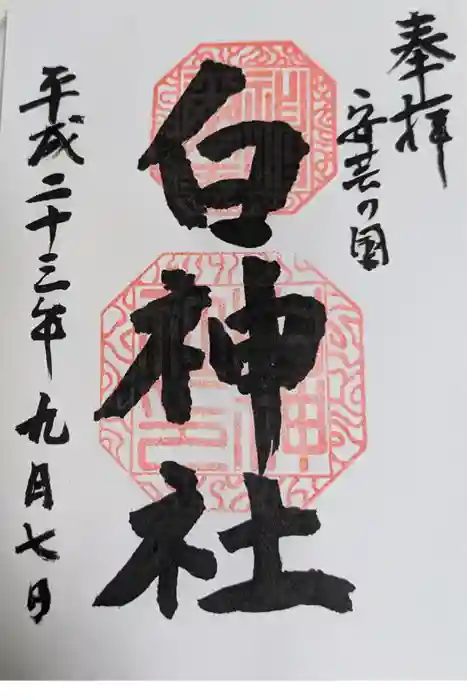 奉拝
安芸の国
白神社
平成二十三年九月七日